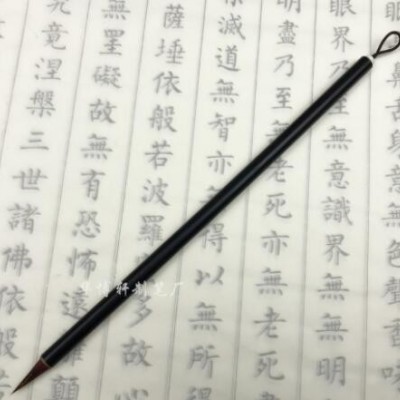 眼界乃至無意識界無無明
明盡乃至無老死亦無老死
滅道無智亦無得以無所得
薩埵依般若波羅蜜多故心
無罣礙故無有恐怖遠離顛
究竟涅槃三世諸佛依般
博轩制笔厂